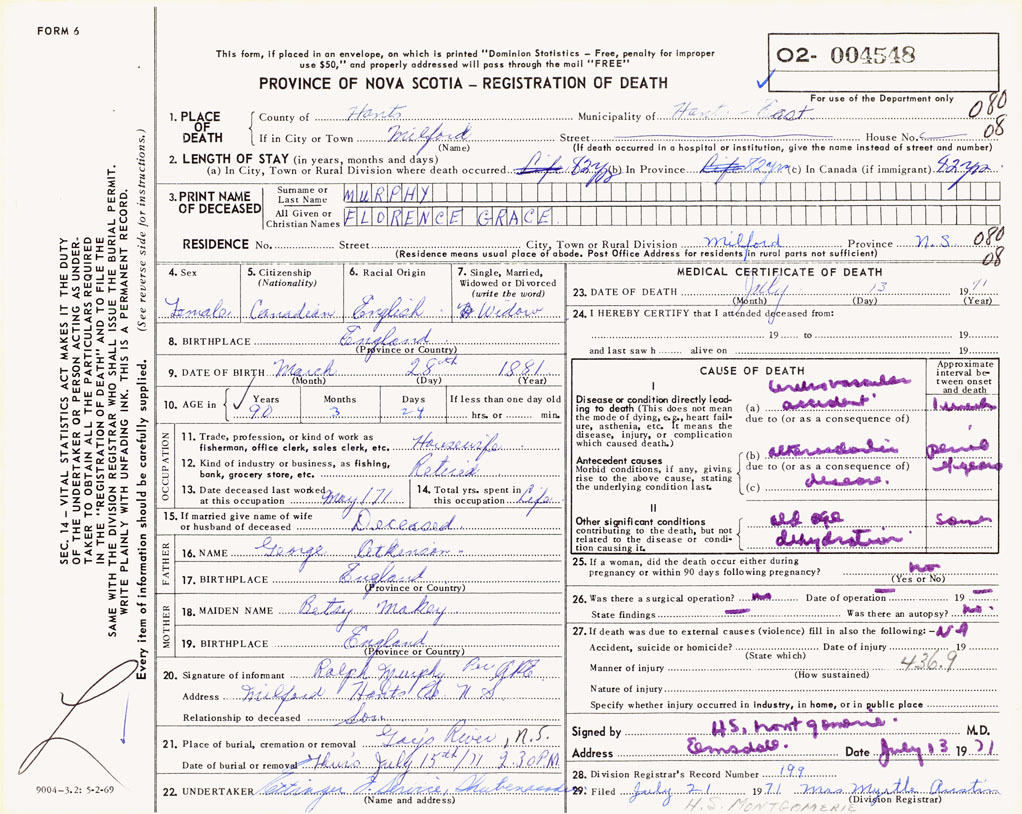 FORM 6
This form, if placed in an envelope, on which is printed "Dominion Statistics – Free, penalty for improper
use $50," and properly addressed will pass through the mail "FREE"
PROVINCE OF NOVA SCOTIA – REGISTRATION OF DEATH
02- 004548
For use of the Department only
080
08
1. PLACE OF DEATH
County of Hants Municipality of Hants - East
If in City or Town Milford Street House No.
(Name) (If death occurred in a hospital or institution, give the name instead of street and number)
2. LENGTH OF STAY (in years, months and days)
(a) In City, Town or Rural Division where death occurred Life 82 yrs (b) In Province Life 82 yrs (c) In Canada (if immigrant) 82 yrs
3. PRINT NAME OF DECEASED
Surname or Last Name MURPHY
All Given or Christian Names FLORENCE GRACE
RESIDENCE No. Street City, Town or Rural Division Milford Province N.S. 080
08
(Residence means usual place of abode. Post Office Address for residents in rural parts not sufficient)
4. Sex Female
5. Citizenship (Nationality) Canadian
6. Racial Origin English
7. Single, Married, Widowed or Divorced (write the word) Widow
8. BIRTHPLACE England
(Province or Country)
9. DATE OF BIRTH March 28th 1881
(Month) (Day) (Year)
10. AGE in Years 90 Months 3 Days 24 If less than one day old hrs. or min.
OCCUPATION
11. Trade, profession, or kind of work as
fisherman, office clerk, sales clerk, etc. Housewife
12. Kind of industry or business, as fishing,
bank, grocery store, etc. Retired
13. Date deceased last worked at this occupation May 171
14. Total yrs. spent in this occupation Life
15. If married give name of wife
or husband of deceased Deceased
FATHER
16. NAME George Atkinson
17. BIRTHPLACE England
(Province or Country)
MOTHER
18. MAIDEN NAME Betsy Makey
19. BIRTHPLACE England
(Province or Country)
20. Signature of informant Ralph Murphy Per
Address Milford Hants Co N S
Relationship to deceased Son
21. Place of burial, cremation or removal Gays River, N.S.
Date of burial or removal Thurs July 15th/71 2.30 PM
22. UNDERTAKER Service, Shubenacadie
(Name and address)
MEDICAL CERTIFICATE OF DEATH
23. DATE OF DEATH July 13 1971
(Month) (Day) (Year)
24. I HEREBY CERTIFY that I attended deceased from:
19 to 19
and last saw h alive on 19
CAUSE OF DEATH
Approximate interval between onset and death
I
Disease or condition directly leading to death (This does not mean the mode of dying, e.g., heart failure, asthenia, etc. It means the disease, injury, or complication which caused death.)
(a) cerebrovascular accident
due to (or as a consequence of)
Antecedent causes
Morbid conditions, if any, giving rise to the above cause, stating the underlying condition last.
(b)
due to (or as a consequence of)
(c) disease.
II
Other significant conditions contributing to the death, but not related to the disease or condition causing it.
old age
dehydration
25. If a woman, did the death occur either during
pregnancy or within 90 days following pregnancy? No
(Yes or No)
26. Was there a surgical operation? No Date of operation 19
State findings Was there an autopsy? No.
27. If death was due to external causes (violence) fill in also the following: - NA
Accident, suicide or homicide? Date of injury 19
(State which) 436.9
Manner of injury
(How sustained)
Nature of injury
Specify whether injury occurred in industry, in home, or in public place
Signed by H.S. Montgomerie M.D.
Address Elmsdale. Date July 13 1971
28. Division Registrar's Record Number 199
29. Filed July 21 1971 Mrs Myrtle Austin
(Division Registrar)
H.S. MONTGOMERIE
SEC. 14 – VITAL STATISTICS ACT MAKES IT THE DUTY
OF THE UNDERTAKER OR PERSON ACTING AS UNDER-
TAKER TO OBTAIN ALL THE PARTICULARS REQUIRED
IN THE "REGISTRATION OF DEATH" AND TO FILE THE
SAME WITH THE DIVISION REGISTRAR WHO SHALL ISSUE THE BURIAL PERMIT.
WRITE PLAINLY WITH UNFADING INK. THIS IS A PERMANENT RECORD.
Every item of information should be carefully supplied. (See reverse side for instructions.)
9004–3.2: 5-2-69